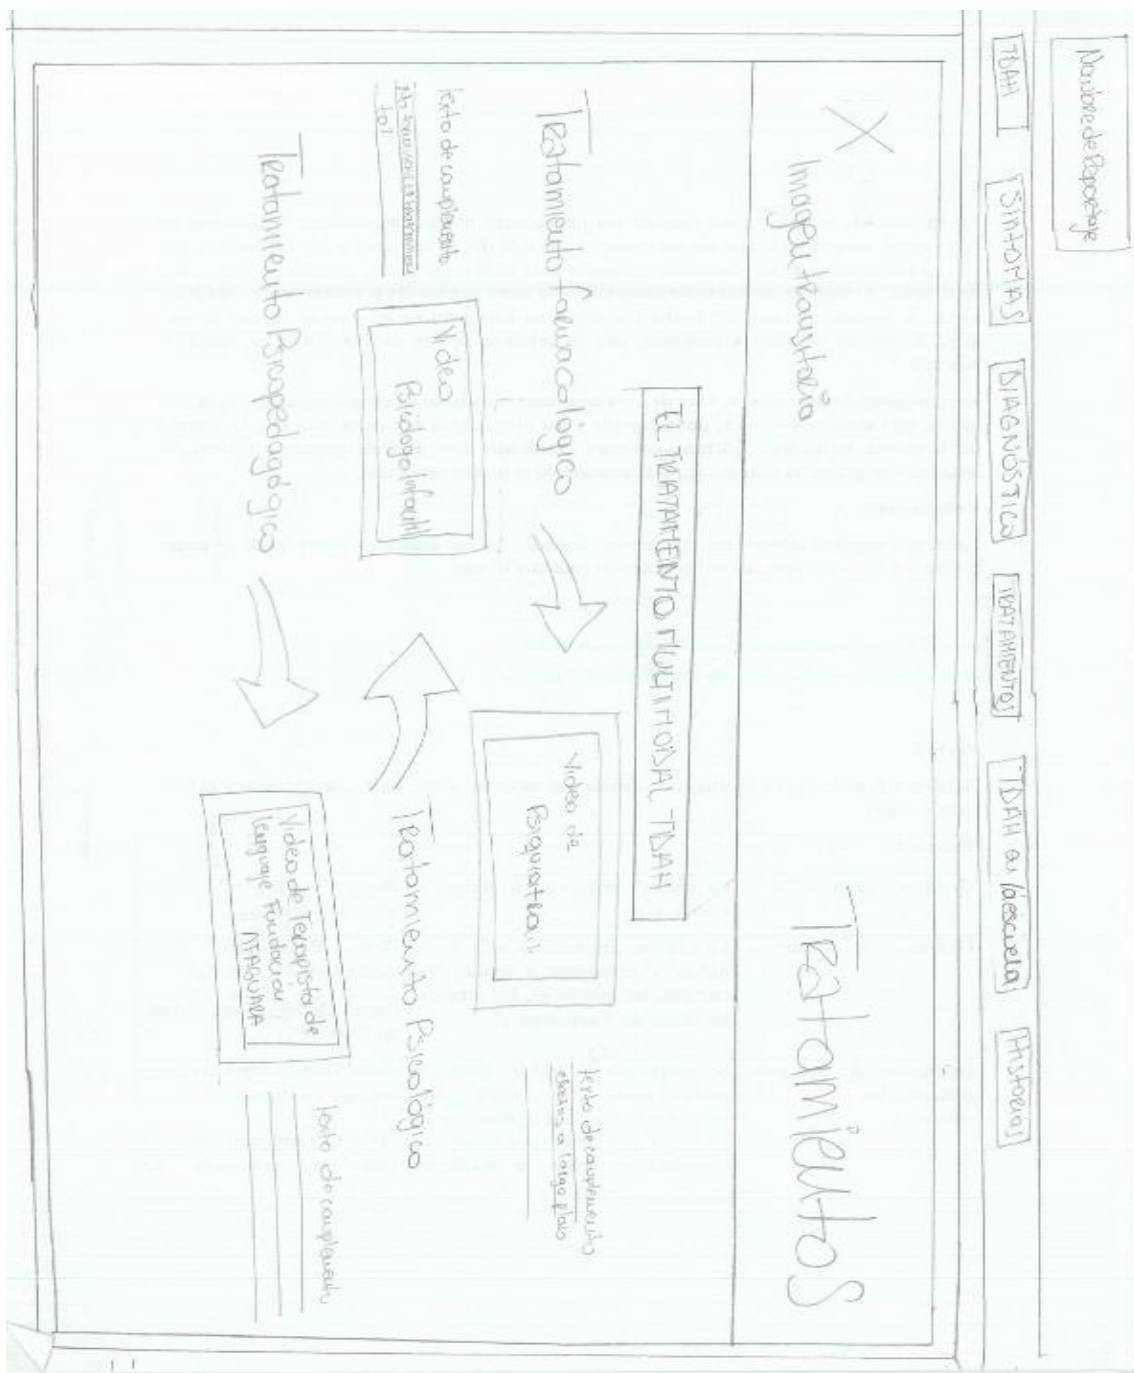 Nombre de Reportaje
TDAH
SÍNTOMAS
DIAGNÓSTICO
TRATAMIENTOS
TDAH en la escuela
Historias
X
Imagen transitoria
Tratamientos
EL TRATAMIENTO MULTIMODAL TDAH
Tratamiento farmacológico
Video de
Psiquiatra
texto de complemento
efectos a largo plazo
texto de complemento
Video
Psicólogo Infantil
Tratamiento Psicológico
Tratamiento Psicopedagógico
Video de Terapista de
lenguaje Fundación
texto de complemento